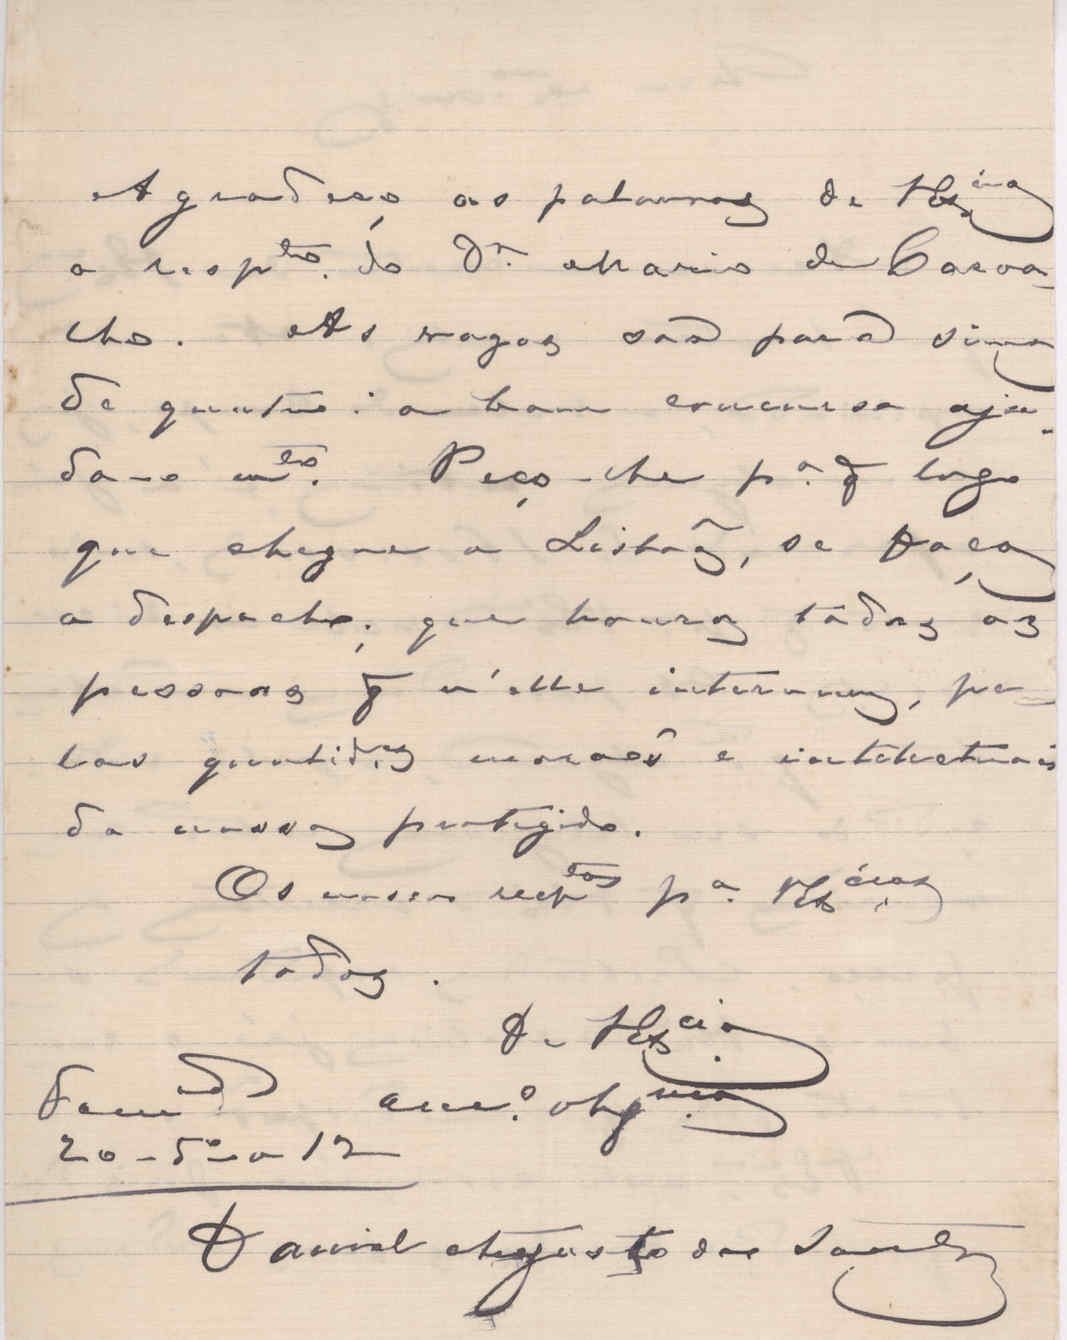 Agradeço as palavras de VExcia
a resptº. do Dr. Mario de Carva-
lho. As vagas são para cima
de quatro: o bom concurso aju-
da-o mtº. Peço-lhe pª. q logo
que chegue a Lisboa, se faça
o despacho, que honra todas as
pessoas q n'elle intervem, pe-
las qualid.es moraes e intelectuaes
do nosso protegido.
Os nossos resptos pª. VExcias
todos.
De VExcia
amº. obgmo
20 - 12
Daniel Augusto dos Santos